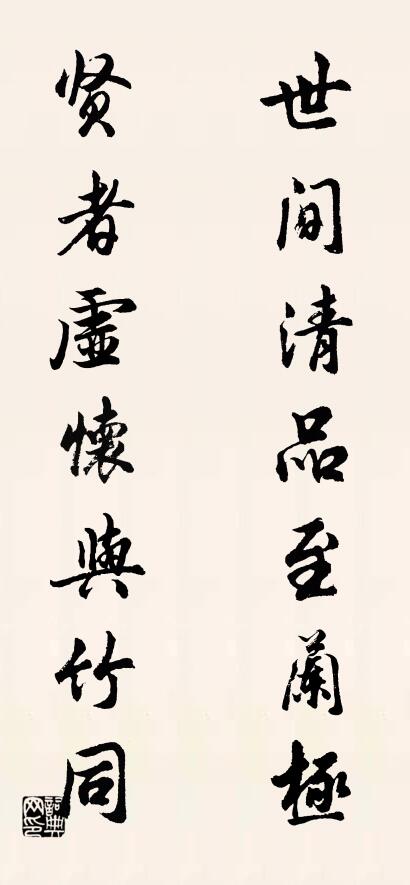 世间清品至蘭極
贤者虚懷與竹同